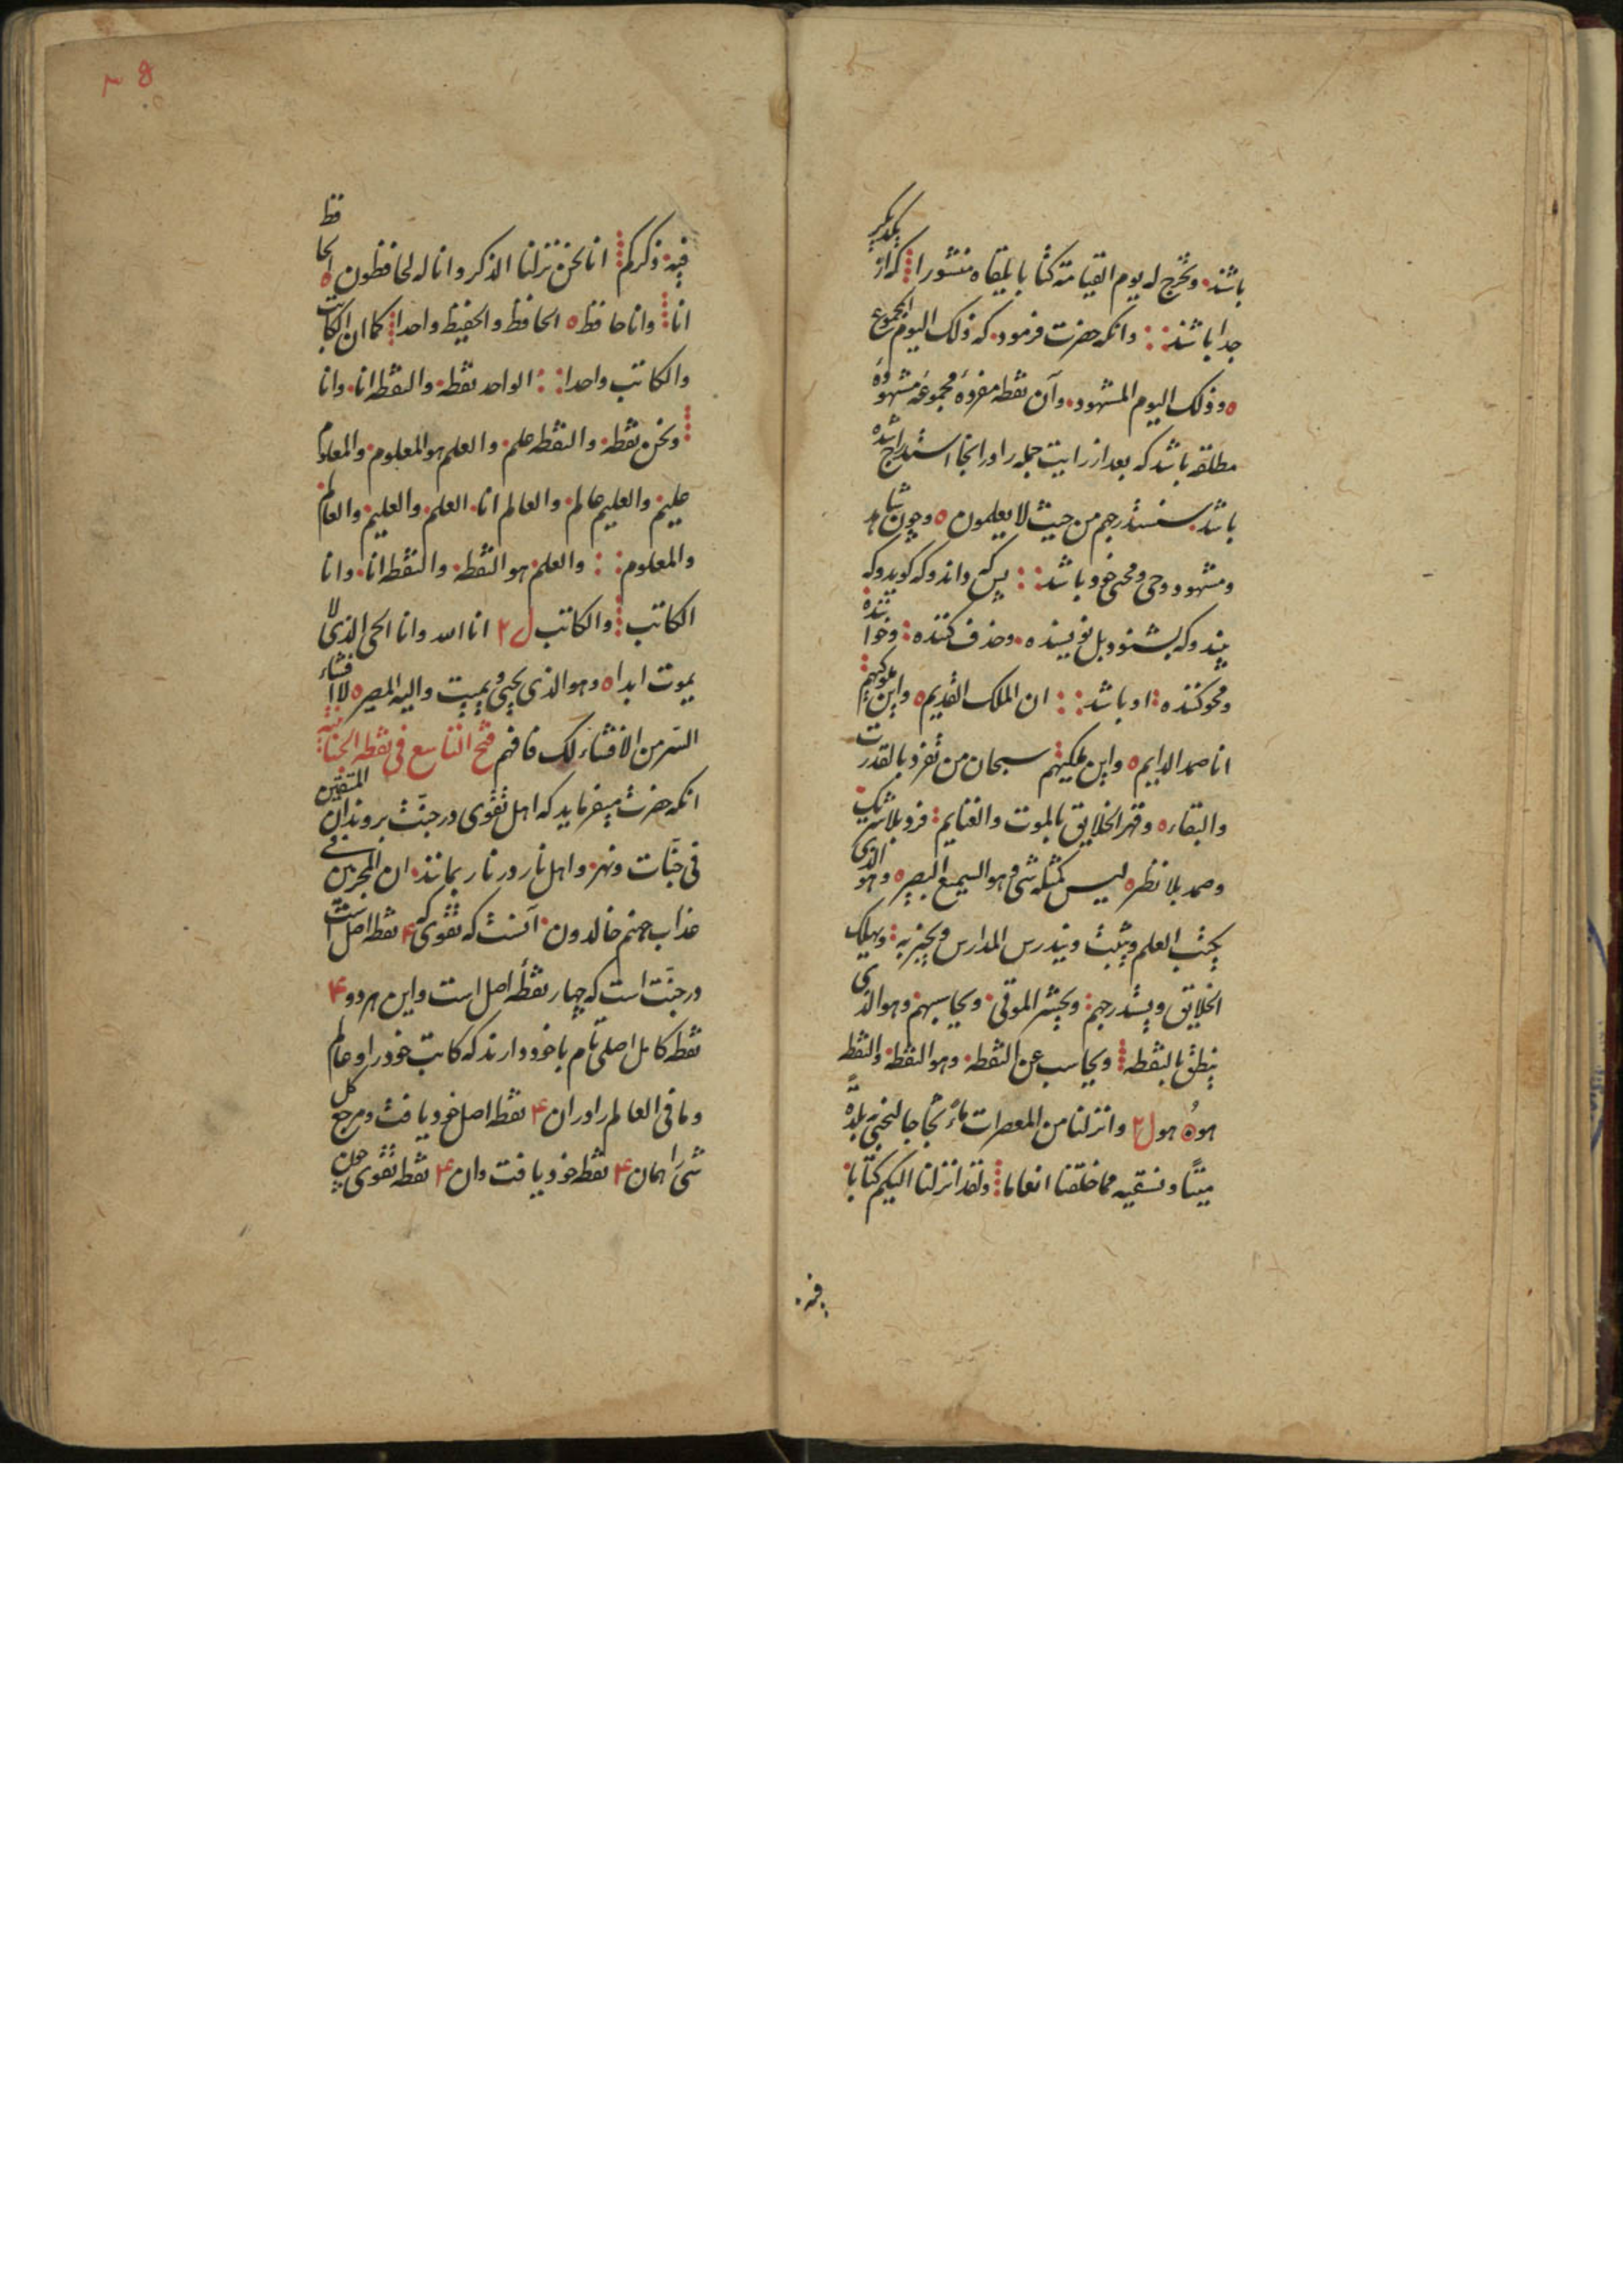 باشد. و نخرج له یوم القیامة کتابا یلقاه منشورا که از یکدیگر
جدا باشند وانکه حضرت فرمود. که ذلک الیوم المجموع
ه وذلک الیوم المشهود. وآن نقطه مفرده مجموعه مشهوده
مطلقه باشد که بعد از رایت جمله را در انجا استدراج اشده
باشد. سنستدرجهم من حیث لا یعلمون ه وچون شاهد
ومشهود وحی ومحیی خود باشد پس که داند وکه گوید وکه
بیند وکه بشنود بل نویسنده. وحذف کننده وخواننده
ومحو کننده او باشد ان الملک القدیم ه واین ملوکیهم
انا صمد الدایم ه واین ملکیتهم سبحان من تفرد بالقدرت
والبقاء ه وقهر الخلایق بالموت والغنایم فرد بلا شریک
وصمد بلا نظر ه لیس کمثله شی وهو السمیع البصیر ه وهو الذی
یکتب العلم ویثبت ویندرس المدارس ویخیر به ویهلک
الخلایق ویستدرجهم ویحشر الموتی. ویحاسبهم. وهو الذی
ینطق بالنقطه ویحاسب عن النقطه. وهو النقطه. والنقطه
هو ه هو وانزلنا من المعصرات ماءً ثجاجا لنحیی به بلدةً
میتًا ونسقیه مما خلقنا انعاما ولقد انزلنا الیکم کتابا
فیه.
۳۵
فیه. ذکرکم انا نحن نزلنا الذکر وانا له لحافظون ه الحافظ
انا وانا حافظ ه الحافظ والحفیظ واحدا کما ان الکاتب
والکاتب واحدا الواحد نقطه. والنقطه انا. وانا
ونحن نقطه. والنقطه علم. والعلم هو المعلوم. والمعلوم
علیم. والعلیم عالم. والعالم انا. العلم. والعلیم. والعالم
والمعلوم والعلم هو النقطه. والنقطه انا. وانا
الکاتب والکاتب انا الله وانا الحی الذی لا
یموت ابدا ه وهو الذی یحیی ویمیت والیه المصیر ه لا افشاء
السر من الافشاء لک فافهم فتح التاسع فی نقطه الجنانیه
انکه حضرت میفرماید که اهل تقوی در جنّت بروند ان المتقین
فی جنّات ونهر. واهل نار در نار بمانند. ان المجرمین فی
عذاب جهنم خالدون. آنست که تقوی که ۴ نقطه اصل است
در جنّت است که چهار نقطهٔ اصل است واین هر دو ۴
نقطه کامل اصلی تام باخود دارند که کاتب خود را وعالم
وما فی العالم را در ان ۴ نقطه اصل خود یافت ومرجع کل
شی را همان ۴ نقطه خود یافت وان ۴ نقطه تقوی چون